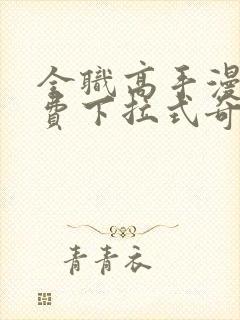 全職高手漫
費下拉式奇
青青衣